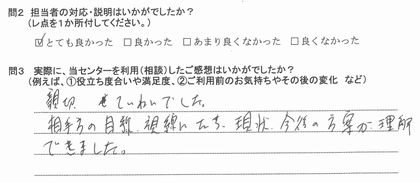 問2 担当者の対応・説明はいかがでしたか？
（レ点を1か所付してください。）
☑とても良かった □良かった □あまり良くなかった □良くなかった
問3 実際に、当センターを利用（相談）したご感想はいかがでしたか？
（例えば、①役立ち度合いや満足度、②ご利用前のお気持ちやその後の変化 など）
親切、ていねいでした。
相手方の目線、視線にたち、現状、今後の方案が理解
できました。